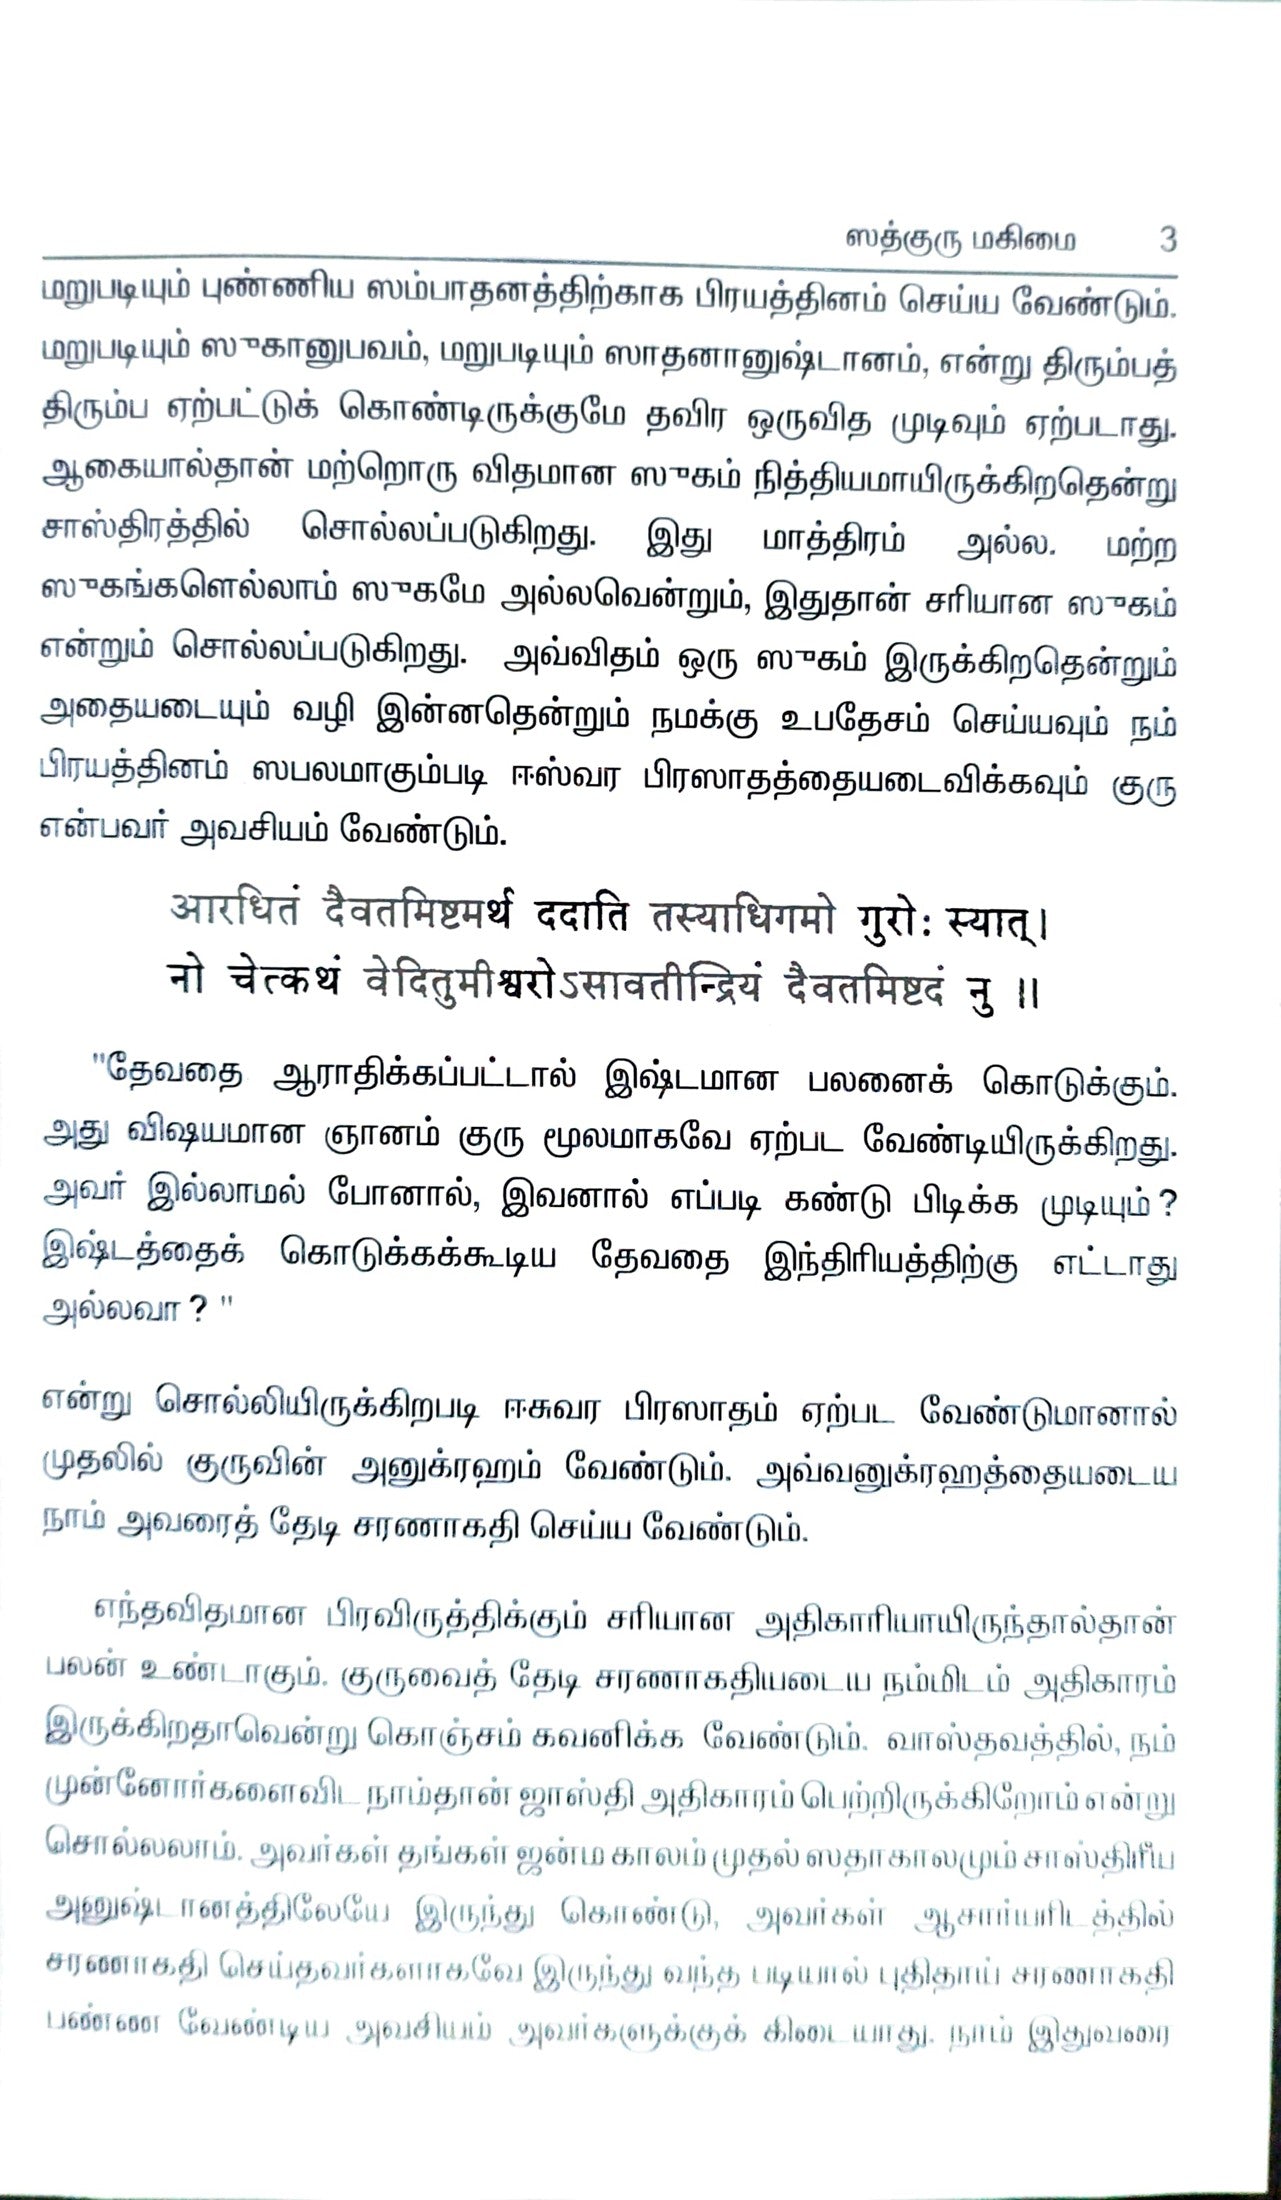 ஸத்குரு மகிமை 3
மறுபடியும் புண்ணிய ஸம்பாதனத்திற்காக பிரயத்தினம் செய்ய வேண்டும்.
மறுபடியும் ஸுகானுபவம், மறுபடியும் ஸாதனானுஷ்டானம், என்று திரும்பத்
திரும்ப ஏற்பட்டுக் கொண்டிருக்குமே தவிர ஒருவித முடிவும் ஏற்படாது.
ஆகையால்தான் மற்றொரு விதமான ஸுகம் நித்தியமாயிருக்கிறதென்று
சாஸ்திரத்தில் சொல்லப்படுகிறது. இது மாத்திரம் அல்ல. மற்ற
ஸுகங்களெல்லாம் ஸுகமே அல்லவென்றும், இதுதான் சரியான ஸுகம்
என்றும் சொல்லப்படுகிறது. அவ்விதம் ஒரு ஸுகம் இருக்கிறதென்றும்
அதையடையும் வழி இன்னதென்றும் நமக்கு உபதேசம் செய்யவும் நம்
பிரயத்தினம் ஸபலமாகும்படி ஈஸ்வர பிரஸாதத்தையடைவிக்கவும் குரு
என்பவர் அவசியம் வேண்டும்.
आरधितं दैवतमिष्टमर्थ ददाति तस्याधिगमो गुरोः स्यात्।
नो चेत्कथं वेदितुमीश्वरोऽसावतीन्द्रियं दैवतमिष्टदं नु ॥
"தேவதை ஆராதிக்கப்பட்டால் இஷ்டமான பலனைக் கொடுக்கும்.
அது விஷயமான ஞானம் குரு மூலமாகவே ஏற்பட வேண்டியிருக்கிறது.
அவர் இல்லாமல் போனால், இவனால் எப்படி கண்டு பிடிக்க முடியும் ?
இஷ்டத்தைக் கொடுக்கக்கூடிய தேவதை இந்திரியத்திற்கு எட்டாது
அல்லவா ? "
என்று சொல்லியிருக்கிறபடி ஈசுவர பிரஸாதம் ஏற்பட வேண்டுமானால்
முதலில் குருவின் அனுக்ரஹம் வேண்டும். அவ்வனுக்ரஹத்தையடைய
நாம் அவரைத் தேடி சரணாகதி செய்ய வேண்டும்.
எந்தவிதமான பிரவிருத்திக்கும் சரியான அதிகாரியாயிருந்தால்தான்
பலன் உண்டாகும். குருவைத் தேடி சரணாகதியடைய நம்மிடம் அதிகாரம்
இருக்கிறதாவென்று கொஞ்சம் கவனிக்க வேண்டும். வாஸ்தவத்தில், நம்
முன்னோர்களைவிட நாம்தான் ஜாஸ்தி அதிகாரம் பெற்றிருக்கிறோம் என்று
சொல்லலாம். அவர்கள் தங்கள் ஜன்ம காலம் முதல் ஸதா காலமும் சாஸ்திரீய
அனுஷ்டானத்திலேயே இருந்து கொண்டு, அவர்கள் ஆசார்யரிடத்தில்
சரணாகதி செய்தவர்களாகவே இருந்து வந்த படியால் புதிதாய் சரணாகதி
பண்ண வேண்டிய அவசியம் அவர்களுக்குக் கிடையாது. நாம் இதுவரை